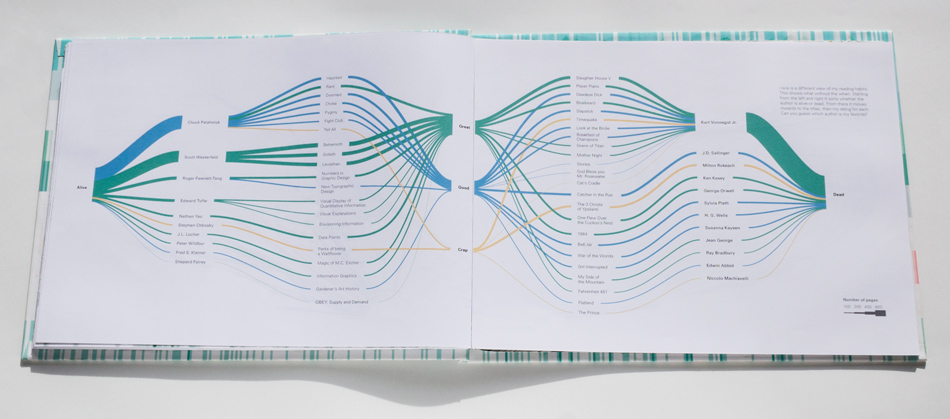 Alive
Chuck Palahniuk
Scott Westerfeld
Roger Fawcett-Tang
Edward Tufte
Nathan Yau
Stephen Chbosky
J.L. Locher
Peter Wildbur
Fred S. Kleiner
Shepard Fairey
Haunted
Rant
Diary
Choke
Pygmy
Fight Club
Tell-All
Behemoth
Goliath
Leviathan
Numbers in
Graphic Design
New Typographic
Design
Visual Display of
Quantitative Information
Visual Explanations
Envisioning Information
Data Points
Perks of being
a Wallflower
Magic of M.C. Escher
Information Graphics
Gardener's Art History
OBEY: Supply and Demand
Great
Good
Crap
Slaughter House 5
Player Piano
Deadeye Dick
Bluebeard
Slapstick
Timequake
Look at the Birdie
Breakfast of
Champions
Sirens of Titan
Mother Night
God Bless you
Mr. Rosewater
Cat's Cradle
Catcher in the Rye
The 3 Christs
of Ypsilanti
One Flew Over
the Cuckoo's Nest
1984
Bell Jar
War of the Worlds
Girl Interrupted
My Side of
the Mountain
Fahrenheit 451
Flatland
The Prince
Kurt Vonnegut Jr.
J.D. Salinger
Milton Rokeach
Ken Kesey
George Orwell
Sylvia Plath
H. G. Wells
Susanna Kaysen
Jean George
Ray Bradbury
Edwin Abbott
Niccolo Machiavelli
Dead
Here is a different view of my reading habits.
Number of pages